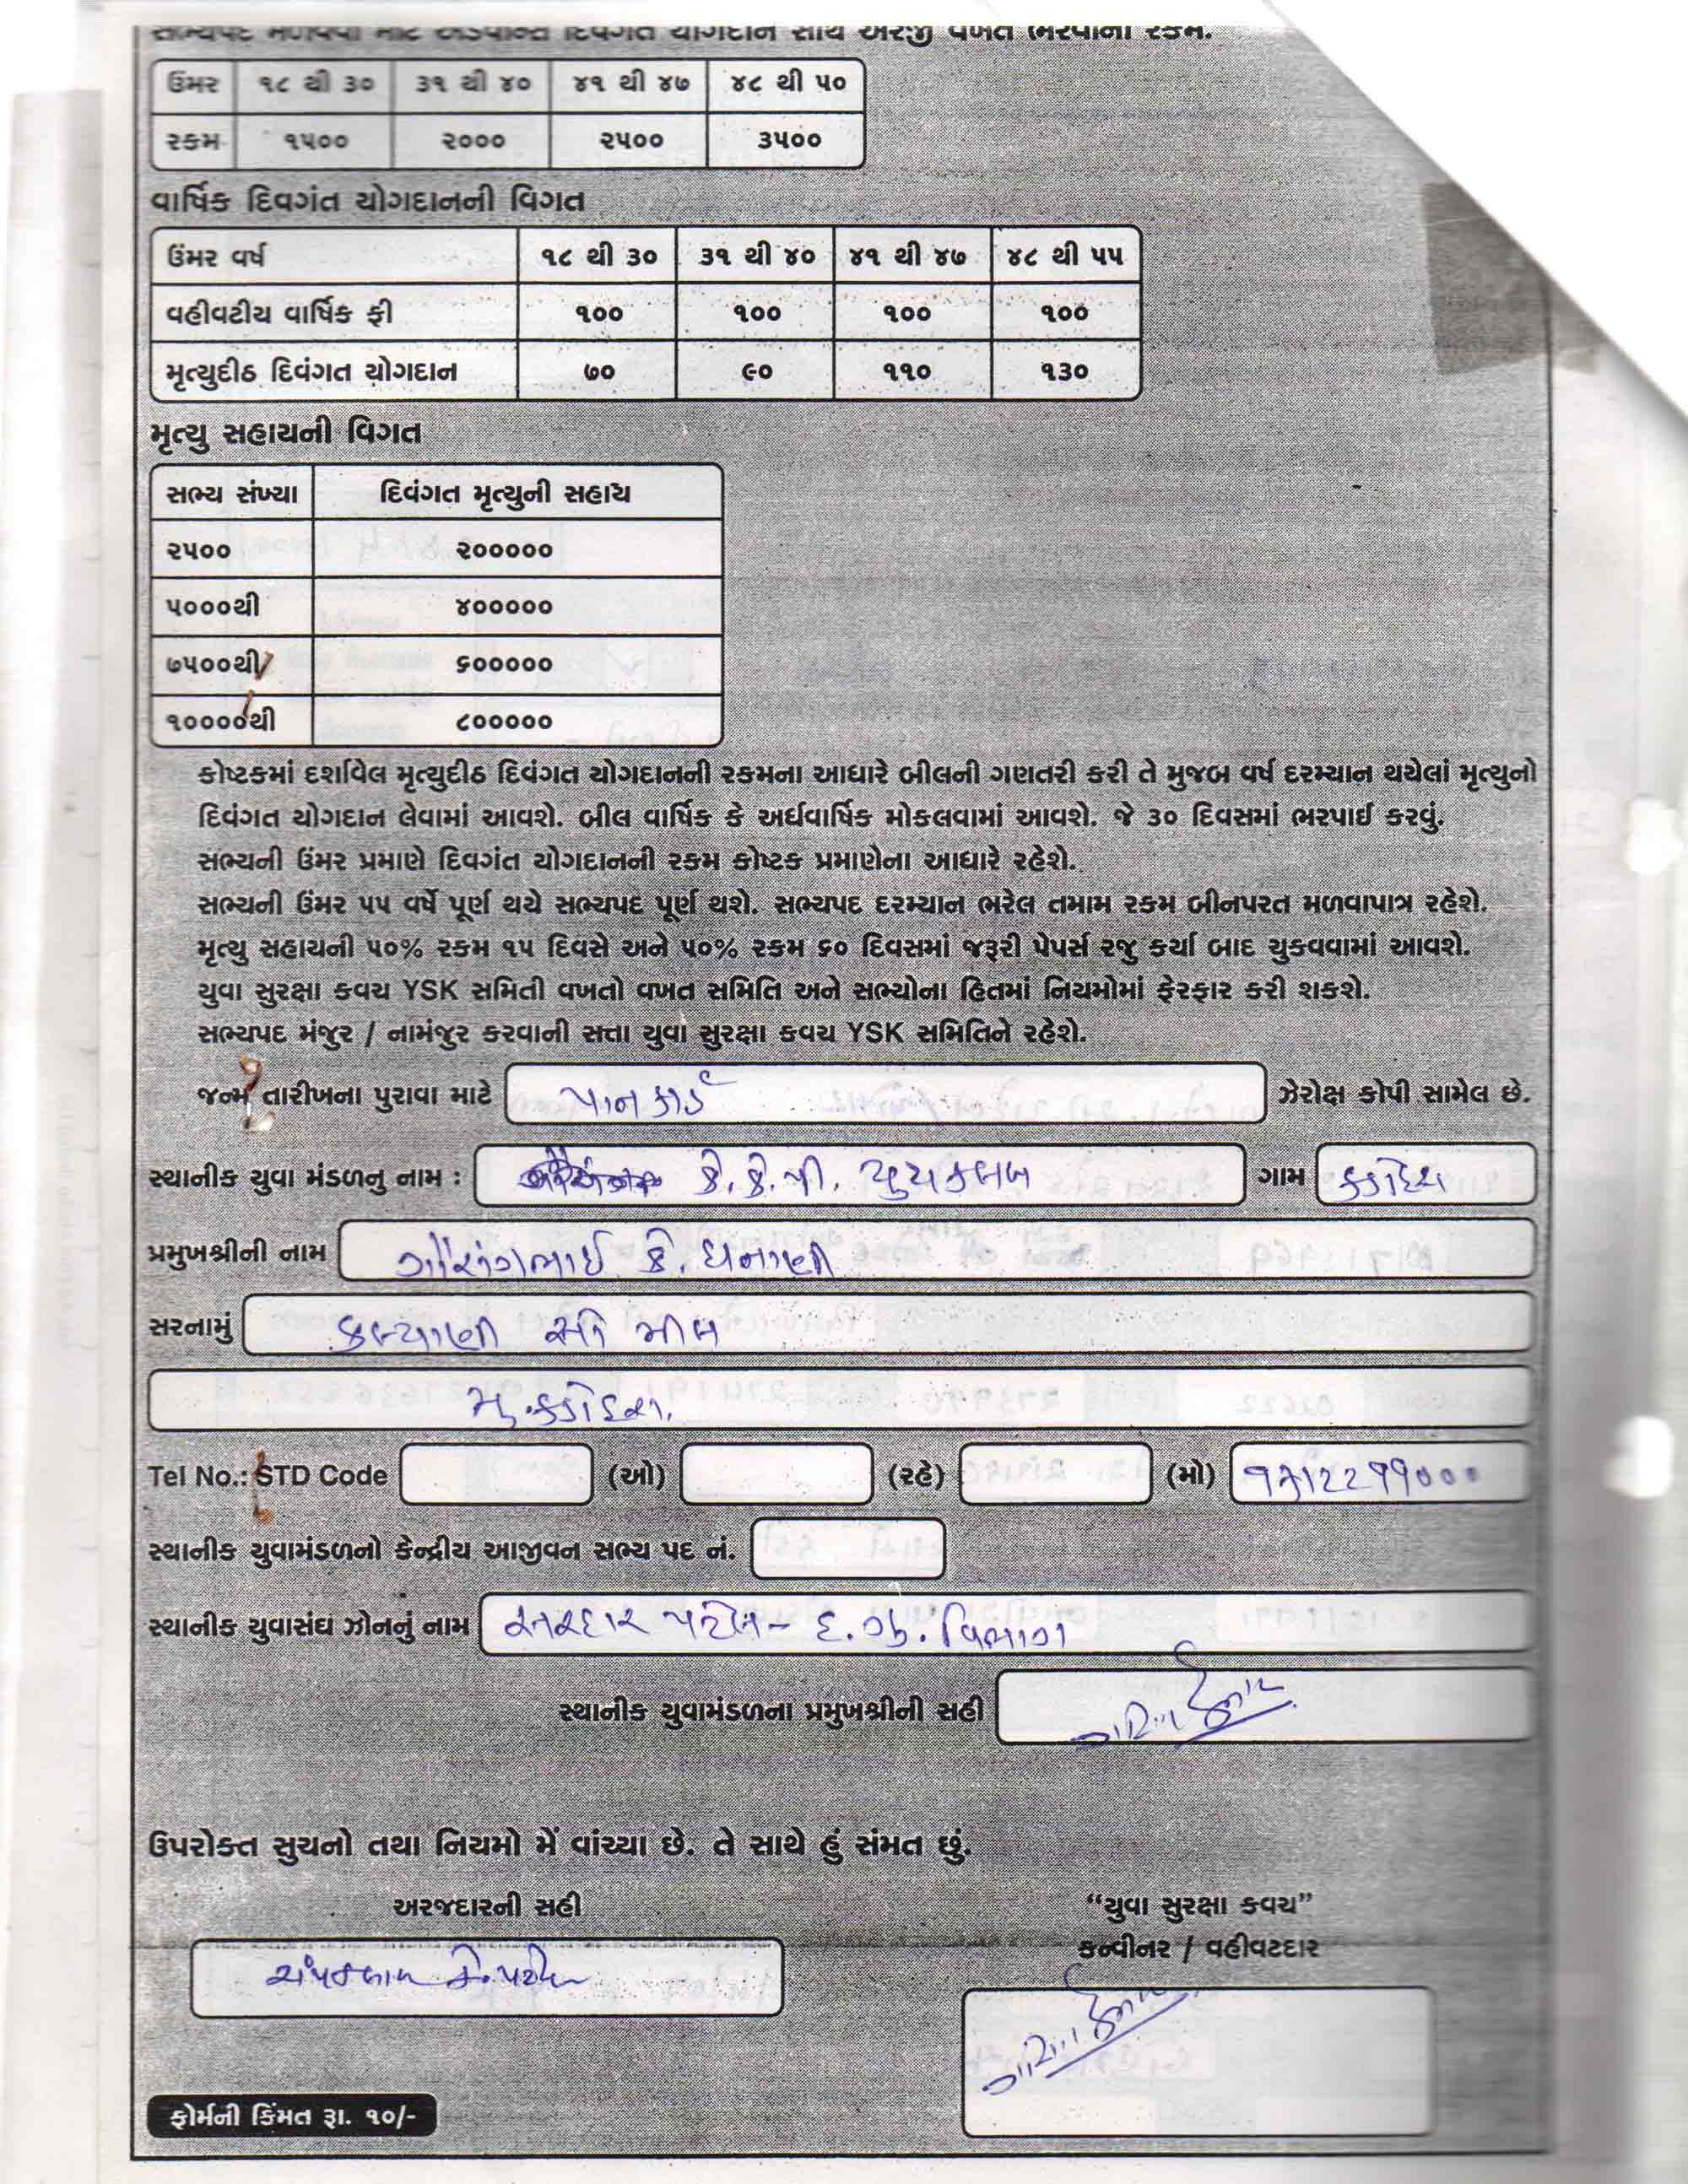 સભ્યપદ મેળવવા માટે એડવાન્સ દિવંગત યોગદાન સાથે અરજી વખતે ભરવાની રકમ.
ઉંમર ૧૮ થી ૩૦ ૩૧ થી ૪૦ ૪૧ થી ૪૭ ૪૮ થી ૫૦
રકમ ૧૫૦૦ ૨૦૦૦ ૨૫૦૦ ૩૫૦૦
વાર્ષિક દિવગંત યોગદાનની વિગત
ઉંમર વર્ષ ૧૮ થી ૩૦ ૩૧ થી ૪૦ ૪૧ થી ૪૭ ૪૮ થી ૫૫
વહીવટીય વાર્ષિક ફી ૧૦૦ ૧૦૦ ૧૦૦ ૧૦૦
મૃત્યુદીઠ દિવંગત યોગદાન ૭૦ ૯૦ ૧૧૦ ૧૩૦
મૃત્યુ સહાયની વિગત
સભ્ય સંખ્યા દિવંગત મૃત્યુની સહાય
૨૫૦૦ ૨૦૦૦૦૦
૫૦૦૦થી ૪૦૦૦૦૦
૭૫૦૦થી ૬૦૦૦૦૦
૧૦૦૦૦થી ૮૦૦૦૦૦
કોષ્ટકમાં દર્શાવેલ મૃત્યુદીઠ દિવંગત યોગદાનની રકમના આધારે બીલની ગણતરી કરી તે મુજબ વર્ષ દરમ્યાન થયેલાં મૃત્યુનો
દિવંગત યોગદાન લેવામાં આવશે. બીલ વાર્ષિક કે અર્ધવાર્ષિક મોકલવામાં આવશે. જે ૩૦ દિવસમાં ભરપાઈ કરવું.
સભ્યની ઉંમર પ્રમાણે દિવગંત યોગદાનની રકમ કોષ્ટક પ્રમાણેના આધારે રહેશે.
સભ્યની ઉંમર ૫૫ વર્ષે પૂર્ણ થયે સભ્યપદ પૂર્ણ થશે. સભ્યપદ દરમ્યાન ભરેલ તમામ રકમ બીનપરત મળવાપાત્ર રહેશે.
મૃત્યુ સહાયની ૫૦% રકમ ૧૫ દિવસે અને ૫૦% રકમ ૬૦ દિવસમાં જરૂરી પેપર્સ રજુ કર્યા બાદ ચુકવવામાં આવશે.
યુવા સુરક્ષા કવચ YSK સમિતી વખતો વખત સમિતિ અને સભ્યોના હિતમાં નિયમોમાં ફેરફાર કરી શકશે.
સભ્યપદ મંજુર / નામંજુર કરવાની સત્તા યુવા સુરક્ષા કવચ YSK સમિતિને રહેશે.
જન્મ તારીખના પુરાવા માટે પાન કાર્ડ ઝેરોક્ષ કોપી સામેલ છે.
સ્થાનીક યુવા મંડળનુ નામ : કે. કે. પી. યુથ કલબ ગામ
પ્રમુખશ્રીની નામ ગૌરાંગભાઈ કે. ધનાણી
સરનામું કલ્યાણી સો મીલ
મુ.
Tel No.: STD Code (ઓ) (રહે) (મો)
સ્થાનીક યુવામંડળનો કેન્દ્રીય આજીવન સભ્ય પદ નં.
સ્થાનીક યુવાસંઘ ઝોનનું નામ સરદાર પટેલ - દ. ગુ. વિભાગ
સ્થાનીક યુવામંડળના પ્રમુખશ્રીની સહી
ઉપરોક્ત સુચનો તથા નિયમો મેં વાંચ્યા છે. તે સાથે હું સંમત છું.
અરજદારની સહી
ચંપકલાલ કે. પટેલ
“યુવા સુરક્ષા કવચ”
કન્વીનર / વહીવટદાર
ફોર્મની કિંમત રૂા. ૧૦/-